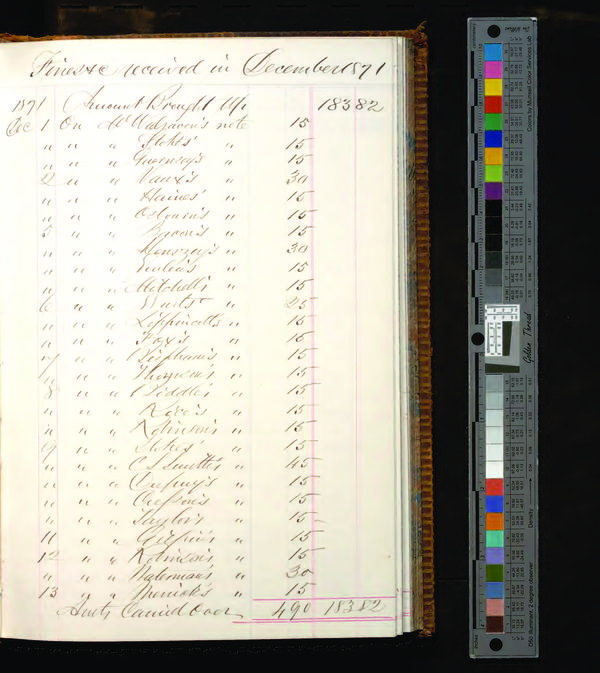 Fines &c received in December 1871
1871 Amount Brought Up 183 82
Dec 1 On Mr Walraven's note 15
" " " Stokes' " 15
" " " Guernsey's " 15
2 " " Vaux's " 30
" " " Haines' " 15
" " " Osbourn's " 15
5 " " Bacon's " 15
" " " Henszey's " 30
" " " " 15
" " " Mitchell's " 15
6 " " Wurts " 25
" " " Lippincott's " 15
" " " Fox's " 15
7 " " " 15
" " " Thompson's " 15
8 " " Biddle's " 15
" " " Rice's " 15
" " " Robinson's " 15
9 " " Stokes' " 15
" " " C S Smith's " 45
" " " " 15
" " " Cresson's " 15
" " " Taylor's " 15
11 " " Gilpin's " 15
12 " " Robinson's " 15
" " " Waterman's " 30
13 " " Merrick's " 15
Amts Carried Over 4 90 183 82
Golden Thread